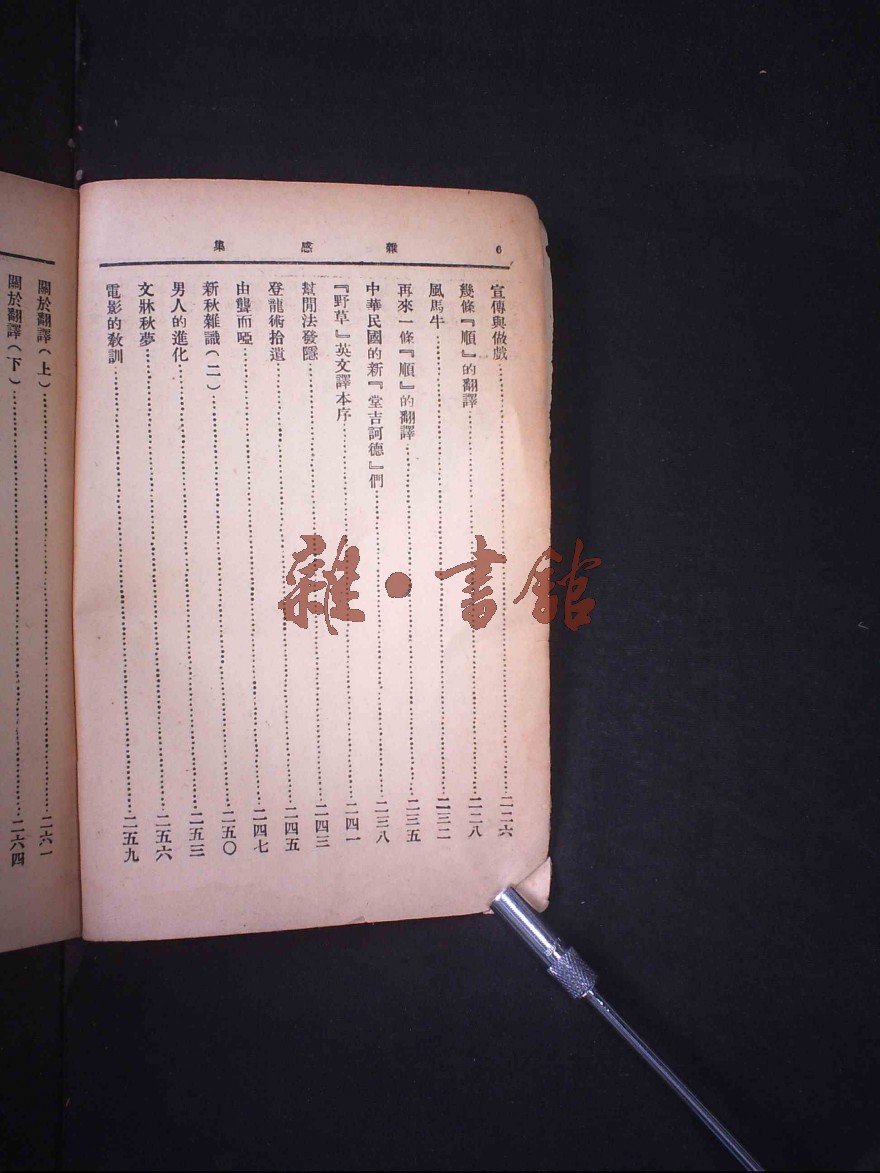 雜感集
6
宣傳與做戲……二二六
幾條『順』的翻譯……二二八
風馬牛……二三二
再來一條『順』的翻譯……二三五
中華民國的新『堂吉訶德』們……二三八
『野草』英文譯本序……二四一
幫閒法發隱……二四三
登龍術拾遺……二四五
由聾而啞……二四七
新秋雜識(二)……二五〇
男人的進化……二五三
文牀秋夢……二五六
電影的敎訓……二五九
關於翻譯(上)……二六一
關於翻譯(下)……二六四
雜·書館